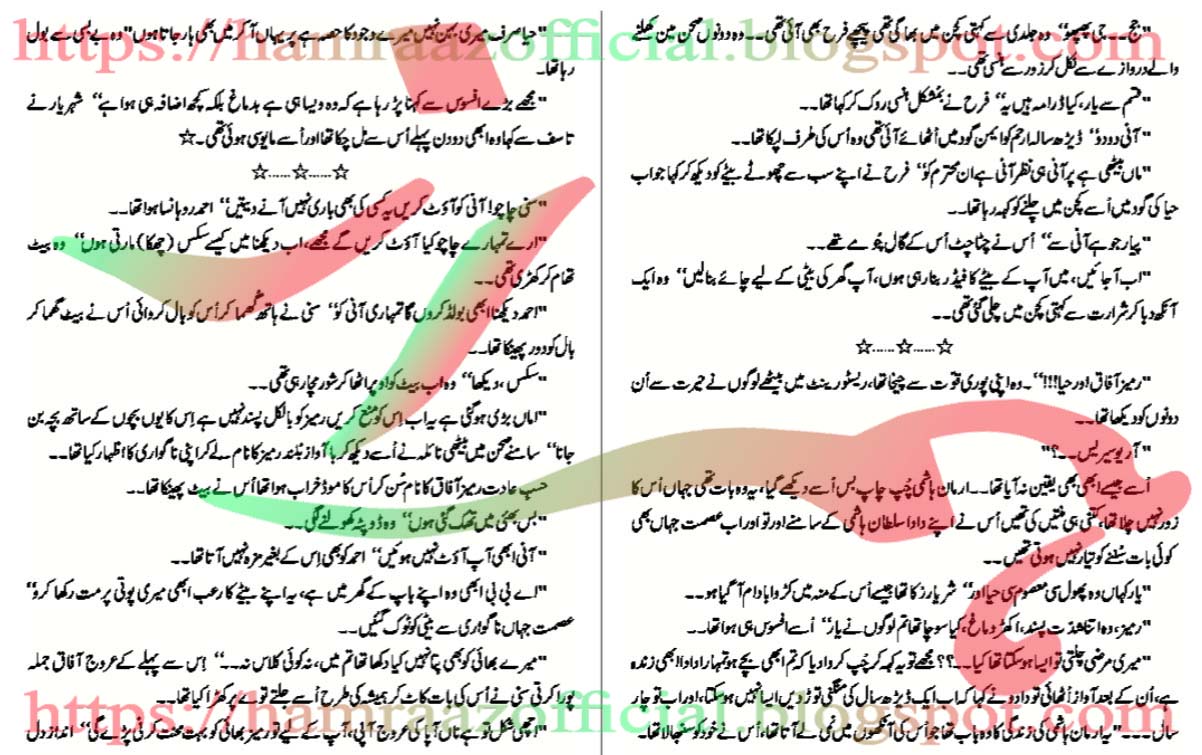 https://hamraazofficial.blogspot.com
"جج۔۔۔ جی پھپھو" وہ جلدی سے کہتی کچن میں بھاگی تھی پیچھے فرح بھی آئی تھی۔۔ وہ دونوں صحن میں کھلنے
والے دروازے سے نکل کر زور سے ہنسی تھی۔۔
"قسم سے یار، کیا ڈرامہ ہیں یہ" فرح نے بمشکل ہنسی روک کر کہا تھا۔۔
"آنی دودو" ڈیڑھ سالہ ارحم کو ایمن گود میں اُٹھائے آئی تھی وہ اُس کی طرف لپکا تھا۔۔
"ماں بیٹھی ہے پر آنی ہی نظر آنی ہے ان محترم کو" فرح نے اپنے سب سے چھوٹے بیٹے کو دیکھ کر کہا جو اب
حیا کی گود میں اُسے کچن میں چلنے کو کہہ رہا تھا۔۔
"پیار جو ہے آنی سے" اُس نے چٹاچٹ اُس کے گال چُومے تھے۔۔
"اب آجائیں، میں آپ کے بیٹے کا فیڈر بنا رہی ہوں، آپ گھر کی بیٹی کے لیے چائے بنالیں" وہ ایک
آنکھ دبا کر شرارت سے کہتی کچن میں چلی گئی تھی۔۔
☆......☆......☆
"رمیز آفاق اور حیا!!!"۔ وہ اپنی پوری قوت سے چیخا تھا، ریسٹورینٹ میں بیٹھے لوگوں نے حیرت سے اُن
دونوں کو دیکھا تھا۔۔
"آر یو سیریس۔۔؟"
اُسے جیسے ابھی بھی یقین نہ آیا تھا۔۔ ارمان ہاشمی چُپ چاپ بس اُسے دیکھے گیا، یہ وہ بات تھی جہاں اُس کا
زور نہیں چلا تھا، کتنی ہی منتیں کی تھیں اُس نے اپنے دادا سلطان ہاشمی کے سامنے اور تو اور اب عصمت جہاں بھی
کوئی بات سُننے کو تیار نہیں ہوتی تھیں۔۔
"یار کہاں وہ پھول سی معصوم سی حیا اور" شہریار رُکا تھا جیسے اُس کے منہ میں کڑوا بادام آگیا ہو۔۔
"رمیز، وہ اتنا شدت پسند، اکھڑ دماغ، کیا سوچا تھا تم لوگوں نے یار" اُسے افسوس ہی ہوا تھا۔۔
"میری مرضی چلتی تو ایسا ہوسکتا تھا کیا۔۔؟؟؟ مجھے تو یہ کہہ کر چُپ کروا دیا کہ تم ابھی بچے ہو تمہارا دادا ابھی زندہ
ہے، اُن کے بعد آواز اُٹھائی تو دادو نے کہا کہ اب ایک ڈیڑھ سال کی منگنی توڑ دیں، ایسا نہیں ہوسکتا، اور اب تو چار
سال۔۔" یہ ارمان ہاشمی کی زندگی کا وہ باب تھا جو اُس کی آنکھوں میں نمی لے آتا تھا، اُس نے خود کو سنبھالا تھا۔
"حیا صرف میری بہن نہیں میرے وجود کا حصہ ہے پر یہاں آکر میں بھی ہار جاتا ہوں" وہ بے بسی سے بول
رہا تھا۔
"مجھے بڑے افسوس سے کہنا پڑ رہا ہے کہ وہ ویسا ہی ہے بددماغ بلکہ کچھ اضافہ ہی ہوا ہے" شہریار نے
تاسف سے کہا وہ ابھی دو دن پہلے اُس سے مل چکا تھا اور اُسے مایوسی ہوئی تھی۔☆
☆......☆......☆
"سنی چاچو! آنی کو آؤٹ کریں یہ کسی کی بھی باری نہیں آنے دیتیں" احمد روہانسا ہوا تھا۔۔
"ارے تمہارے چاچو کیا آؤٹ کریں گے مجھے، اب دیکھنا میں کیسے سکس (چھکا) مارتی ہوں" وہ بیٹ
تھام کر کھڑی تھی۔۔
"احمد دیکھنا ابھی بولڈ کروں گا تمہاری آنی کو" سنی نے ہاتھ گھما کر اُس کو بال کروائی اُس نے بیٹ گھما کر
بال کو دور پھینکا تھا۔۔
"سکس، دیکھا" وہ اب بیٹ کو اوپر اٹھا کر شور مچا رہی تھی۔۔
"اماں بڑی ہوگئی ہے یہ اب اِس کو منع کریں رمیز کو بالکل پسند نہیں ہے اِس کا یوں بچوں کے ساتھ بچہ بن
جانا" سامنے صحن میں بیٹھی نائلہ نے اُسے دیکھ کر باآواز بلند رمیز کا نام لے کر اپنی ناگواری کا اظہار کیا تھا۔۔
حسبِ عادت رمیز آفاق کا نام سُن کر اُس کا موڈ خراب ہوا تھا اُس نے بیٹ پھینکا تھا۔۔
"بس بھئی میں تھک گئی ہوں" وہ ڈوپٹہ کھولنے لگی۔۔
"آنی ابھی آپ آؤٹ نہیں ہوئیں" احمد کو بھی اِس کے بغیر مزہ نہیں آتا تھا۔۔
"اے بی بی ابھی وہ اپنے باپ کے گھر میں ہے، یہ اپنے بیٹے کا رعب ابھی میری پوتی پر مت رکھا کرو"
عصمت جہاں ناگواری سے بیٹی کو ٹوک گئیں۔۔
"میرے بھائی کو بھی پتا نہیں کیا دکھا تھا تم میں، نہ کوئی کلاس نہ۔۔" اِس سے پہلے کے عروج آفاق جملہ
پورا کرتی سنی نے اُس کی بات کاٹ کر ہمیشہ کی طرح اُسے جلتے توے پر کھڑا کیا تھا۔۔
"اچھی شکل تو ہے ناں آپا کی عروج آپی، آپ کے لیے تو رمیز بھائی کو بہت محنت کرنی پڑے گی" انداز دل
https://hamraazofficial.blogspot.com